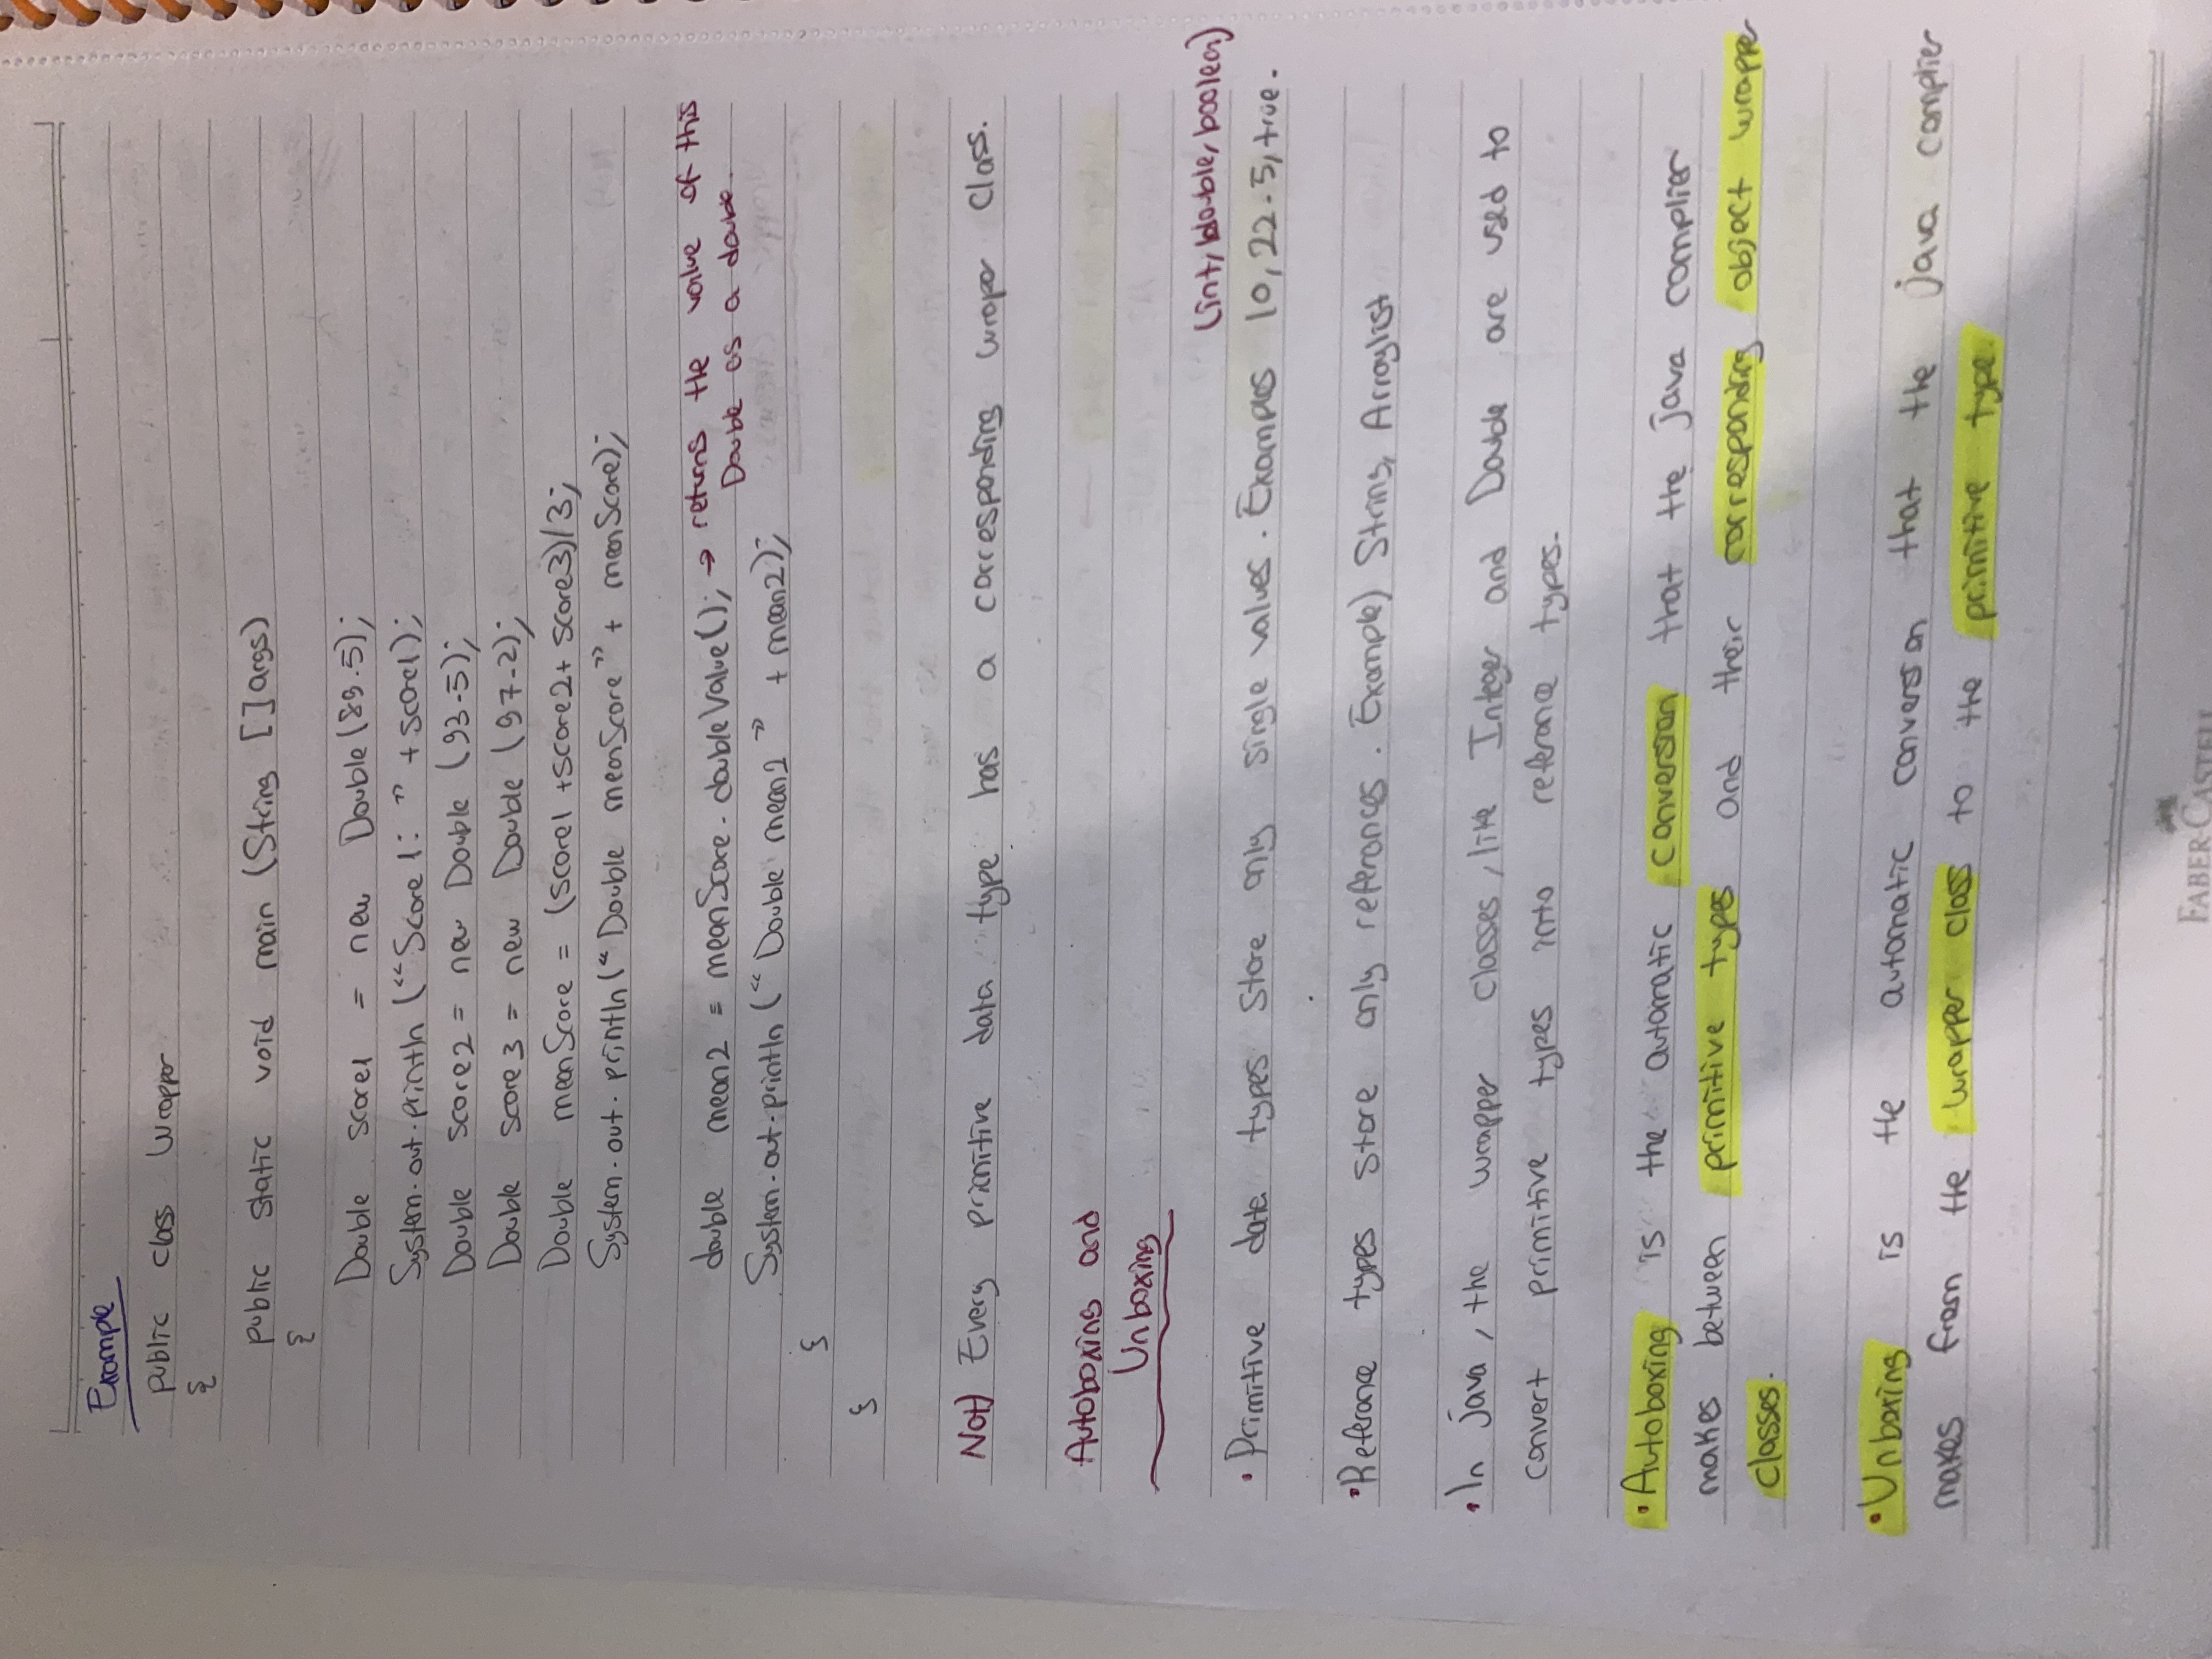 Example
public class Wrapper
{
public static void main (String []args)
{
Double score1 = new Double (89.5);
System.out.println ("Score 1: " + score1);
Double score2 = new Double (93.5);
Double score3 = new Double (97.2);
Double meanScore = (score1 +score2+ score3)/3;
System.out.println ("Double meanScore" + meanScore);
double mean2 = meanScore.doubleValue(); → returns the value of this
Double as a double.
System.out.println ("Double mean2 " + mean2);
}
}
Not) Every primitive data type has a corresponding wraper class.
Autoboxing and
Unboxing
(int, double, boolean)
• Primitive data types store only single values. Examples 10, 22.5, true.
• Reference types store only references. Example) String, Arraylist
• In java, the wrapper classes, like Integer and Double are used to
convert primitive types into reference types.
• Autoboxing is the automatic conversion that the java complier
makes between primitive types and their corresponding object wrapper
classes.
• Unboxing is the automatic conversion that the java complier
makes from the wrapper class to the primitive type.
FABER-CASTELL